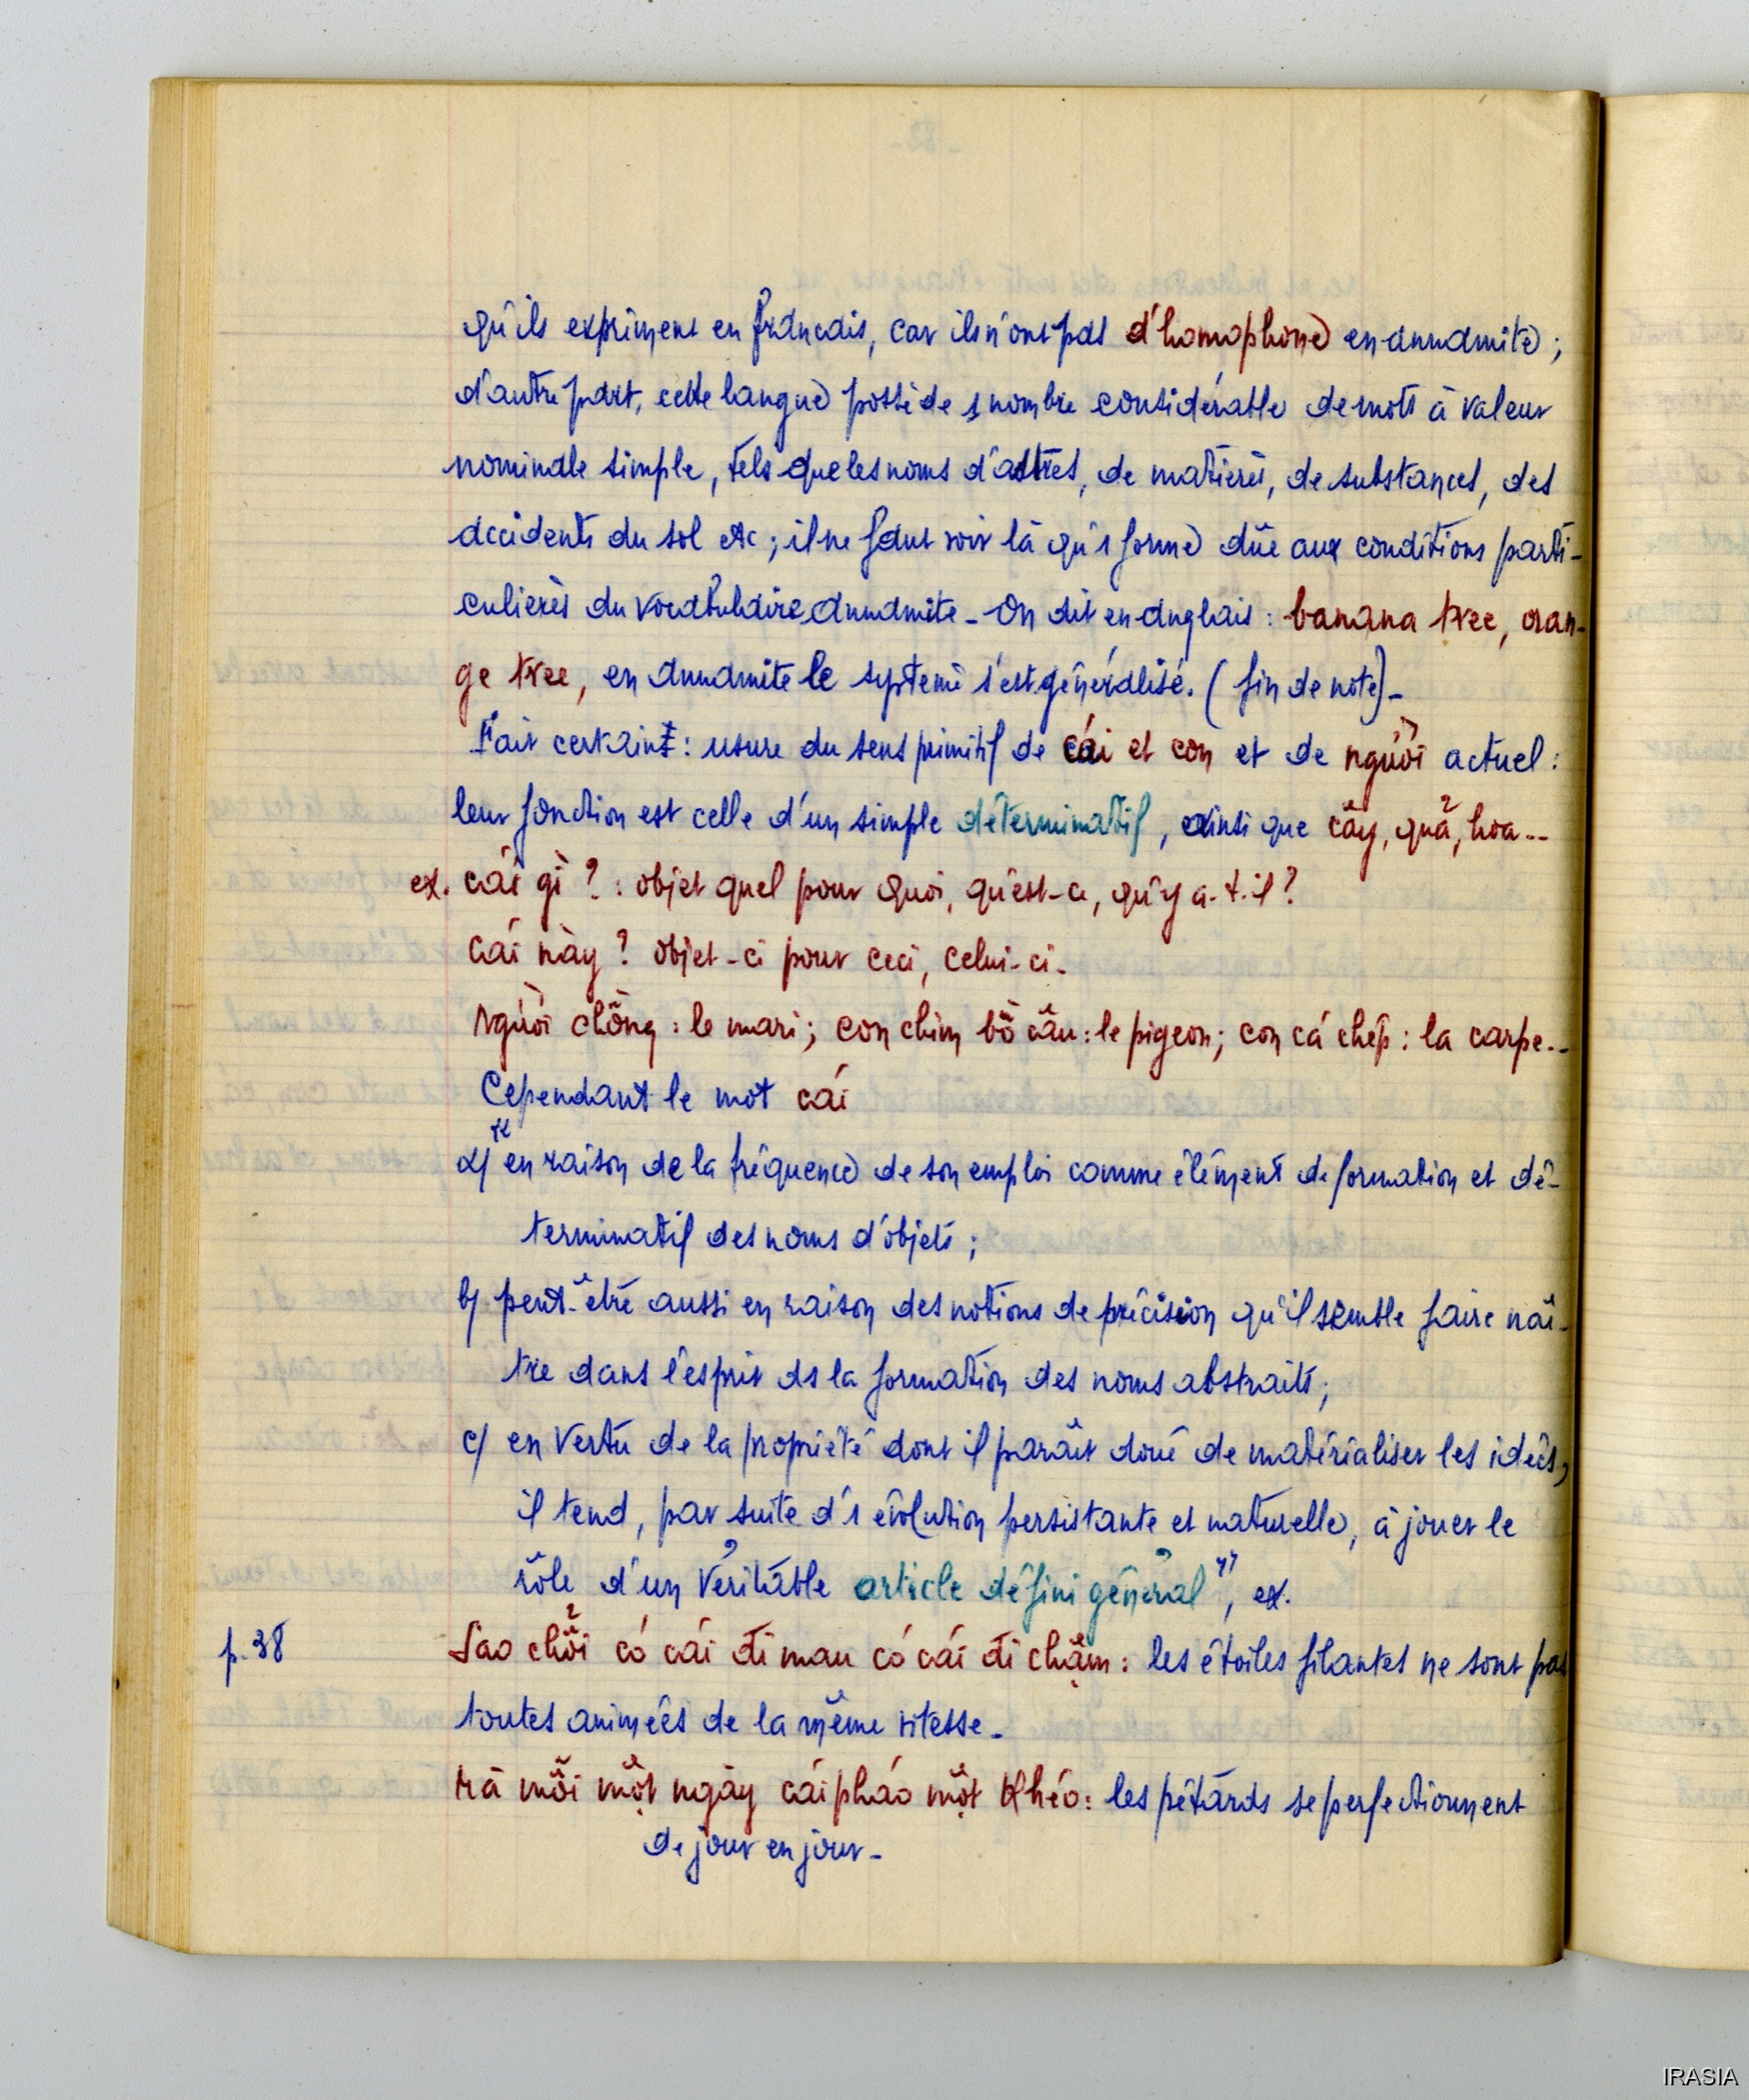 qu'ils expriment en français, car ils n'ont pas d'homophone en annamite ;
d'autre part, cette langue possède 1 nombre considérable de mots à valeur
nominale simple, tels que les noms d'astres, de matières, de substances, des
accidents du sol etc ; il ne faut voir là qu'1 forme dûe aux conditions parti-
culières du vocabulaire annamite - On dit en anglais : banana tree, oran-
ge tree, en annamite le système s'est généralisé. ( fin de note ) -
Fait certain : usure du sens primitif de cái et con et de người actuel :
leur fonction est celle d'un simple déterminatif, ainsi que cây, quả, hoa ...
ex. cái gì ? : objet quel pour quoi, qu'est-ce, qu'y a-t-il ?
cái này ? objet-ci pour ceci, celui-ci -
Người chồng : le mari ; con chim bồ câu : le pigeon ; con cá chép : la carpe ..
Cependant le mot cái
a/ " en raison de la fréquence de son emploi comme élément de formation et dé-
terminatif des noms d'objets ;
b/ peut-être aussi en raison des notions de précision qu'il semble faire naî-
tre dans l'esprit ds la formation des noms abstraits ;
c/ en vertu de la propriété dont il paraît doué de matérialiser les idées,
il tend, par suite d'1 évolution persistante et naturelle, à jouer le
rôle d'un véritable article défini général ", ex.
p. 38
Sao chổi có cái đi mau có cái đi chậm : les étoiles filantes ne sont pas
toutes animées de la même vitesse -
Mà mỗi một ngày cái pháo một khéo : les pétards se perfectionnent
de jour en jour -
IRASIA